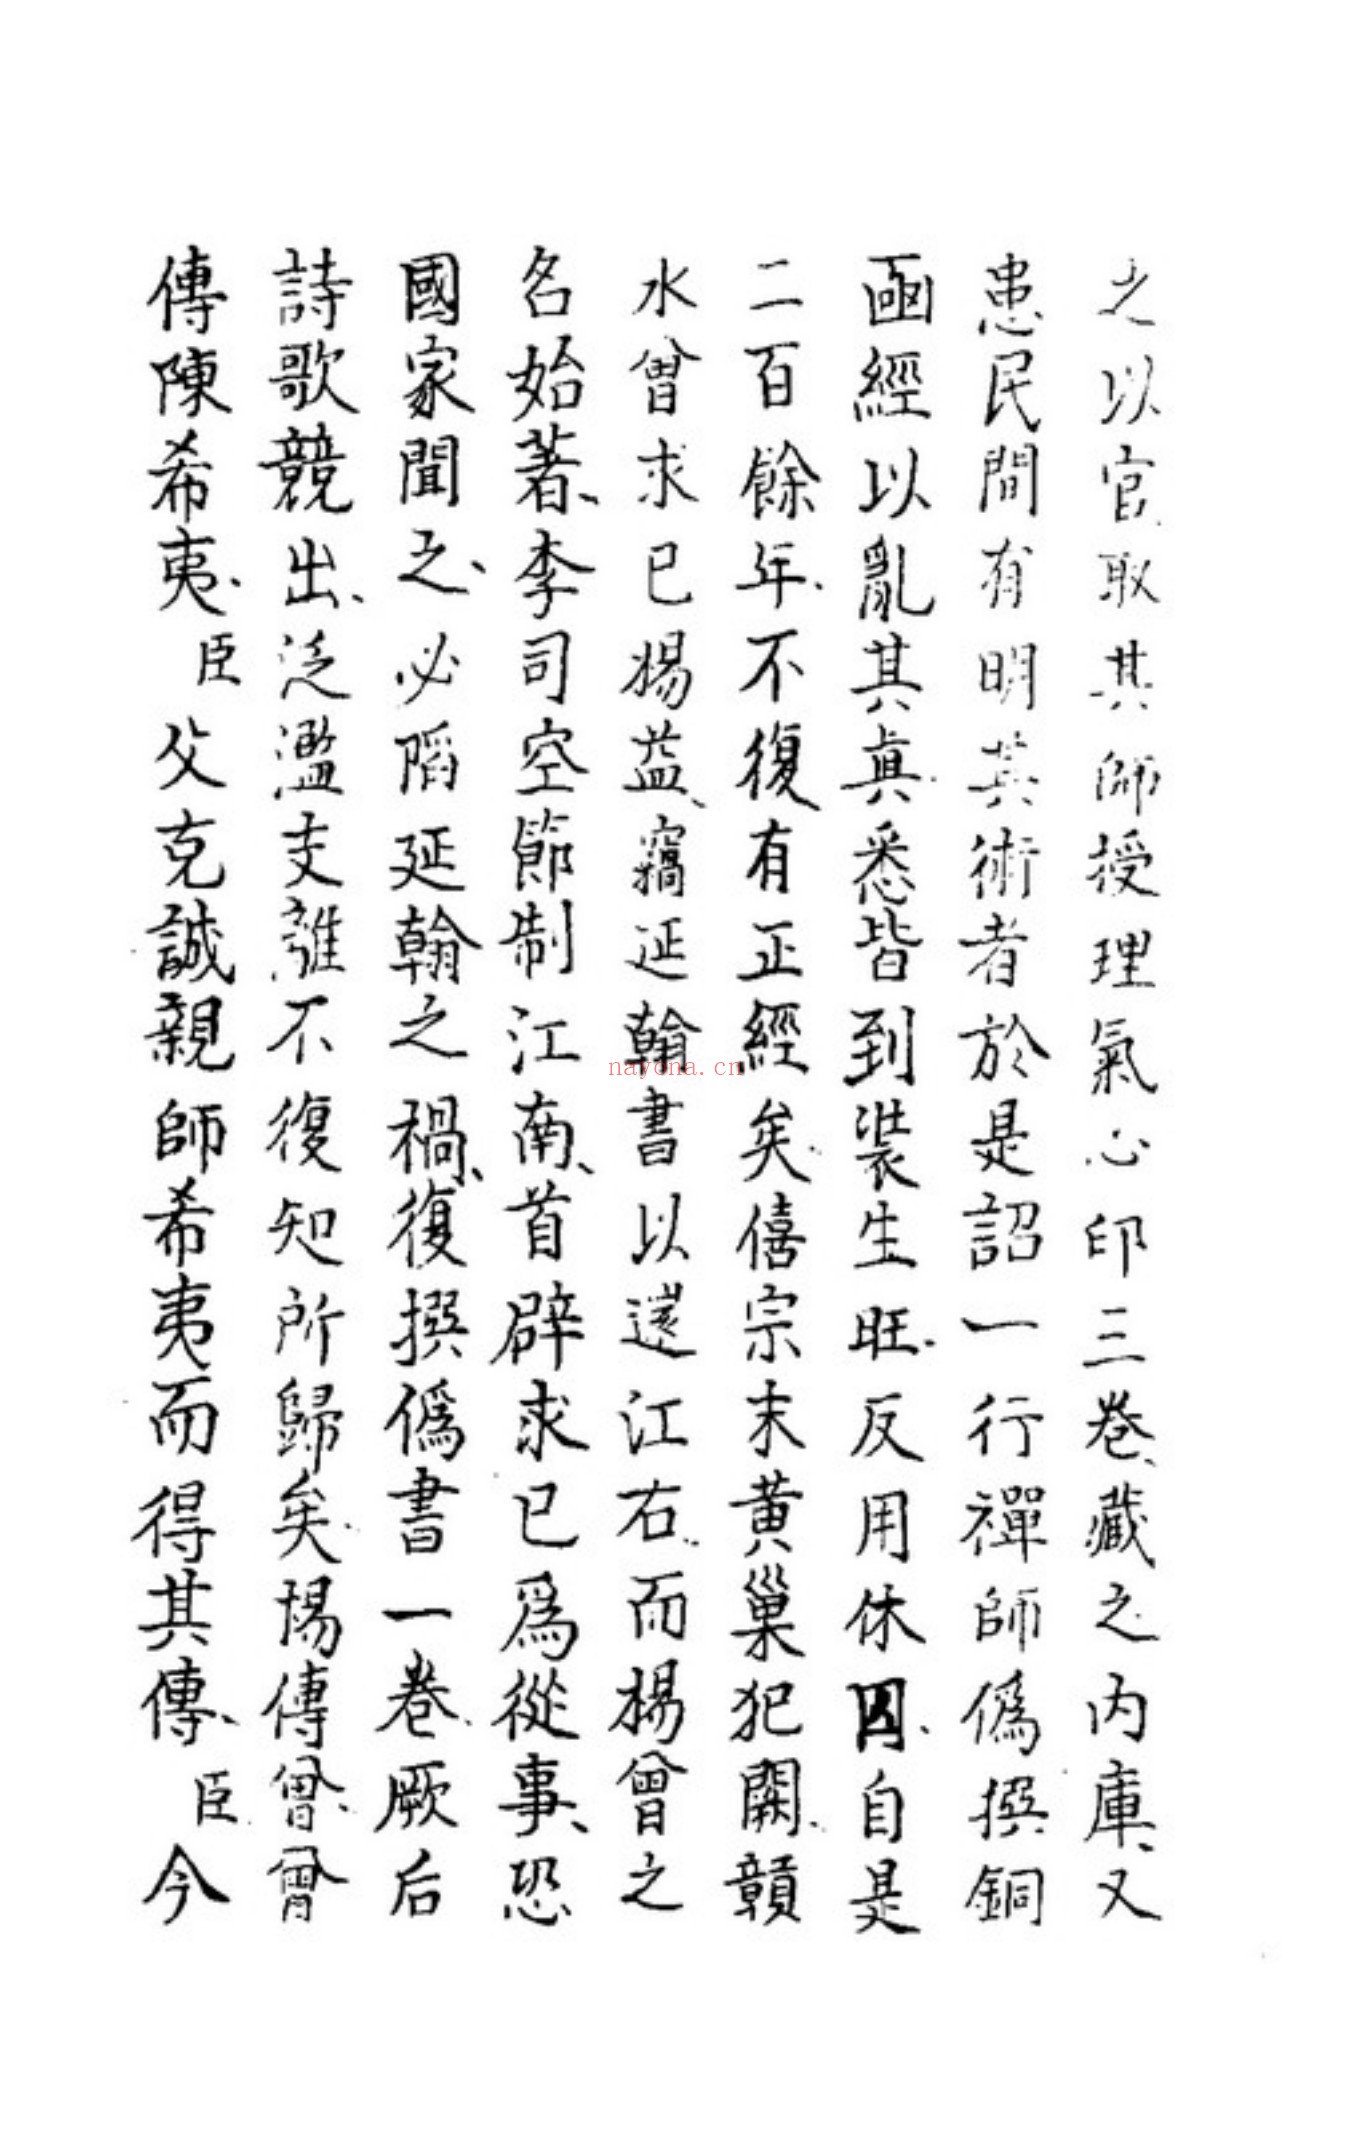 之以官取其師授理氣心印三卷、藏之内庫、又
患民間有明其術者於是詔一行禪師僞撰銅
凾經以亂其眞悉皆到裝生旺、反用休囚、自是
二百餘年、不復有正經矣、僖宗末黄巢犯闕、贑
水曾求已楊益、竊延翰書以還江右、而楊曾之
名始著、李司空節制江南、首辟求已爲從事、恐
國家聞之、必蹈延翰之禍、復撰僞書一卷、厥后
詩歌競出、泛濫支離不復知所歸矣、楊傳曾、曾
傳陳希夷、臣父克誠親師希夷而得其傳、臣今
nayona.cn